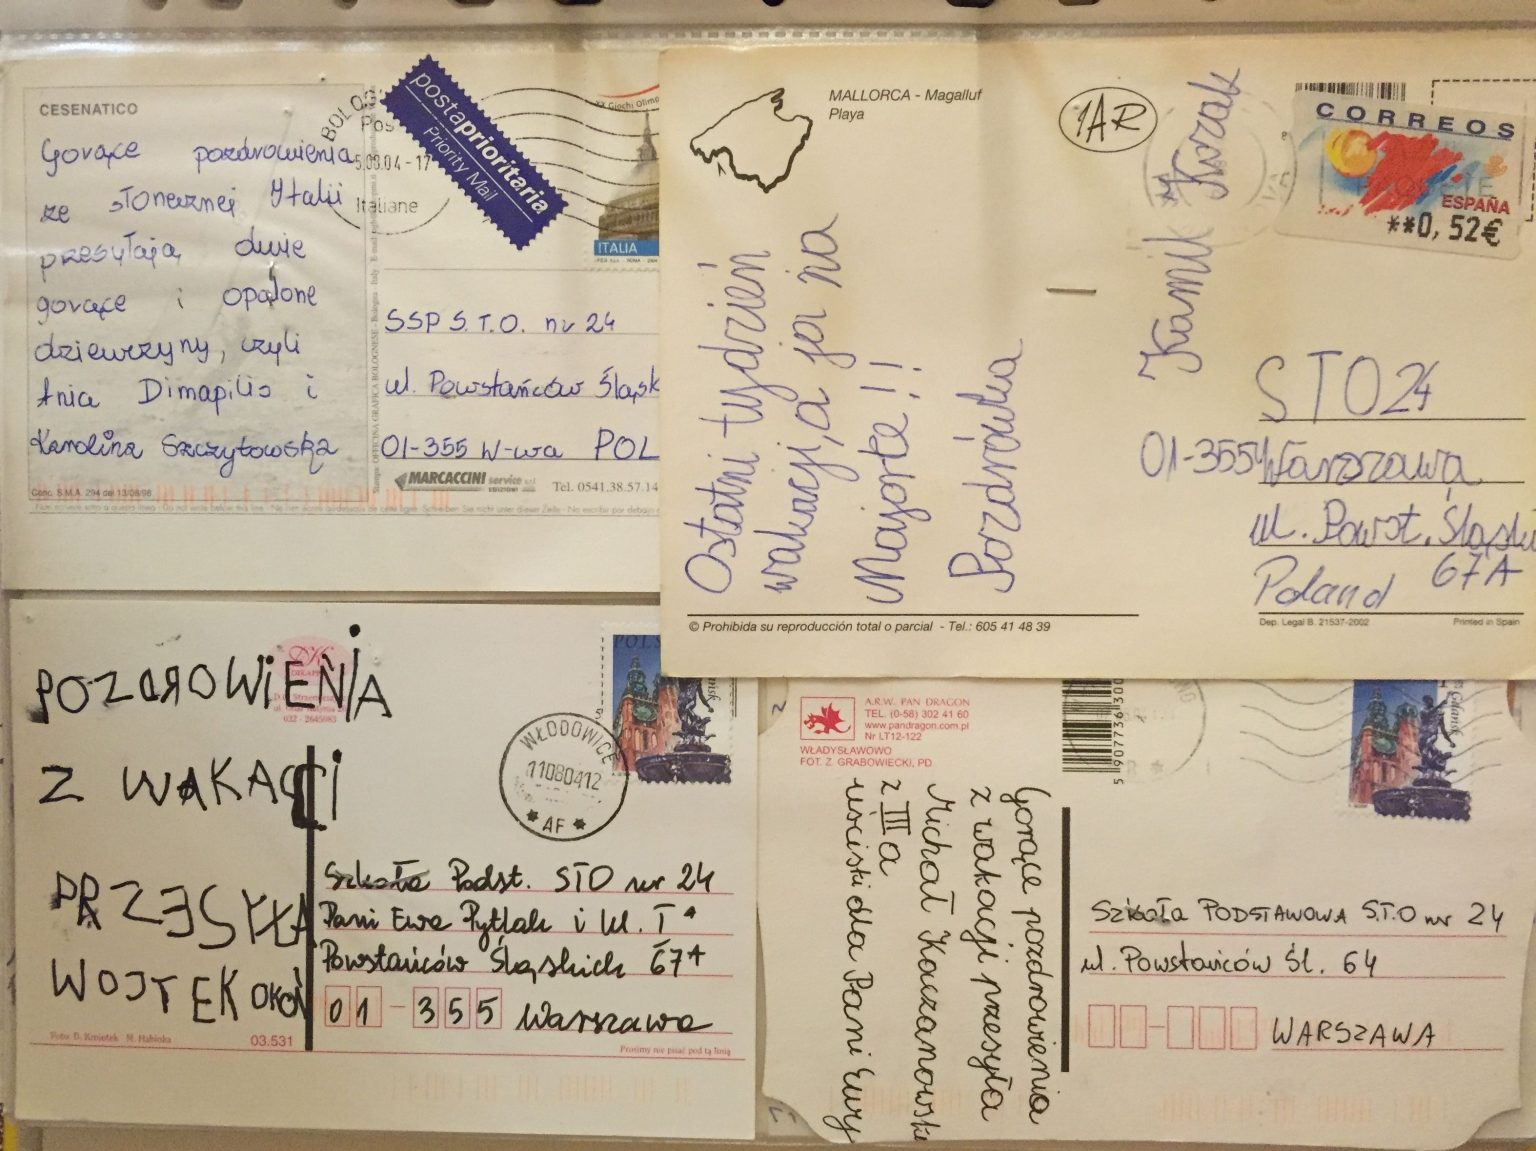 CESENATICO
Gorące pozdrowienia
ze słonecznej Italii
przesyłają dwie
gorące i opalone
dziewczyny, czyli
Ania Dimapilis i
Karolina Szczytowska
Conc. S.M.A. 294 del 13/08/98
postaprioritaria
Priority Mail
BOLOG
Pos
5.08.04-17
Italiane
XX Giochi Olim
ITALIA
SSP S.T.O. nr 24
ul. Powstańców Śląsk
01-355 W-wa POL
MARCACCINI service
EDIZIONI
Tel. 0541.38.57.14
Stampa: OFFICINA GRAFICA BOLOGNESE - Bologna - Italy
MALLORCA - Magalluf
Playa
1AR
CORREOS
ESPAÑA
**0,52€
Ostatni tydzień
wakacji, a ja na
Majorte!!
Pozdrówka
Kamil Kozak
STO 24
01-355 Warszawa
ul. Powst. Śląski
67A
Poland
© Prohibida su reproducción total o parcial - Tel.: 605 41 48 39
Dep. Legal B. 21537-2002
Printed in Spain
POZDROWIEŃIA
Z WAKACJI
PRZESYŁA
WOJTEK OKOŃ
032 - 2645083
POLS
WŁODOWICE
11080412
* AF *
Szkoła Podst. STO nr 24
Pani Ewa Pytlak i kl. Iᵃ
Powstańców Śląskich 67A
01-355 Warszawa
Foto: D. Kmiotek M. Habloka
03.531
Prosimy nie pisać pod tą linią
A.R.W. PAN DRAGON
TEL. (0-58) 302 41 60
www.pandragon.com.pl
Nr LT12-122
WŁADYSŁAWOWO
FOT. Z. GRABOWIECKI, PD
5 907736 300
Gdańsk
Gorące pozdrowienia
z wakacji przesyła
Michał Kaczanowski
z III a
uściski dla Pani Ewy
Szkoła PODSTAWOWA S.T.O nr 24
ul. Powstańców Śl. 64
WARSZAWA